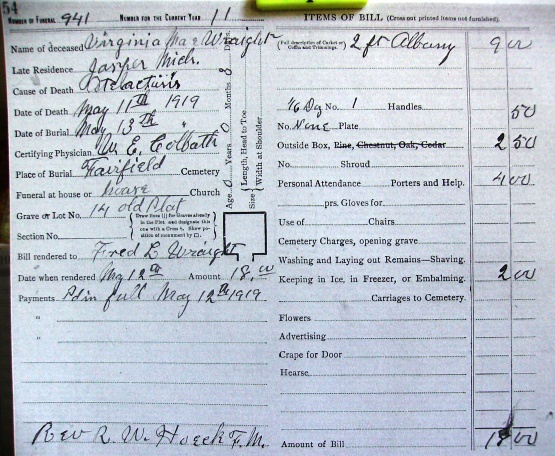 54
NUMBER OF FUNERAL 941 NUMBER FOR THE CURRENT YEAR 11
Name of deceased Virginia Mae Wraight
Late Residence Jasper Mich.
Cause of Death Atelactisis
Date of Death May 11th 1919
Date of Burial May 13th "
Certifying Physician W. E. Colbath
Place of Burial Fairfield Cemetery
Funeral at house or Church
Grave or Lot No. 14 old Plat
Section No.
Draw lines (|) for Graves already in the Plot and designate this one with a Cross +. Show position of monument by □.
Bill rendered to Fred L Wraight
Date when rendered My 12th Amount 18.00
Payments Pd in full May 12th 1919
"
"
Rev R. W. Hoeck F. M.
Age 0 Years 0 Months 8 Days
Length, Head to Toe
Size Width at Shoulder
ITEMS OF BILL (Cross out printed items not furnished.)
(Full description of Casket or Coffin and Trimmings.) 2 ft Albany 9 00
1/6 Dzg No. 1 Handles 50
No. None Plate
Outside Box, Pine, Chestnut, Oak, Cedar 2 50
No. Shroud
Personal Attendance Porters and Help. 4 00
prs. Gloves for
Use of Chairs
Cemetery Charges, opening grave
Washing and Laying out Remains—Shaving.
Keeping in Ice, in Freezer, or Embalming. 2 00
Carriages to Cemetery.
Flowers
Advertising
Crape for Door
Hearse
Amount of Bill 18 00